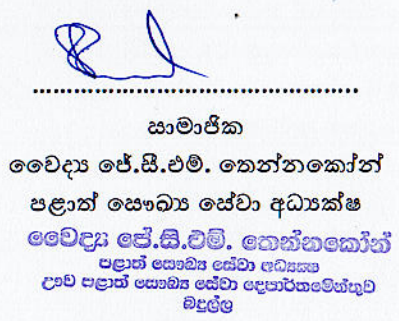 සාමාජික
වෛද්‍ය ජේ.සී.එම්. තෙන්නකෝන්
පළාත් සෞඛ්‍ය සේවා අධ්‍යක්ෂ
වෛද්‍ය ජේ.සි.එම්. තෙන්නකෝන්
පළාත් සෞඛ්‍ය සේවා අධ්‍යක්ෂ
ඌව පළාත් සෞඛ්‍ය සේවා දෙපාර්තමේන්තුව
බදුල්ල